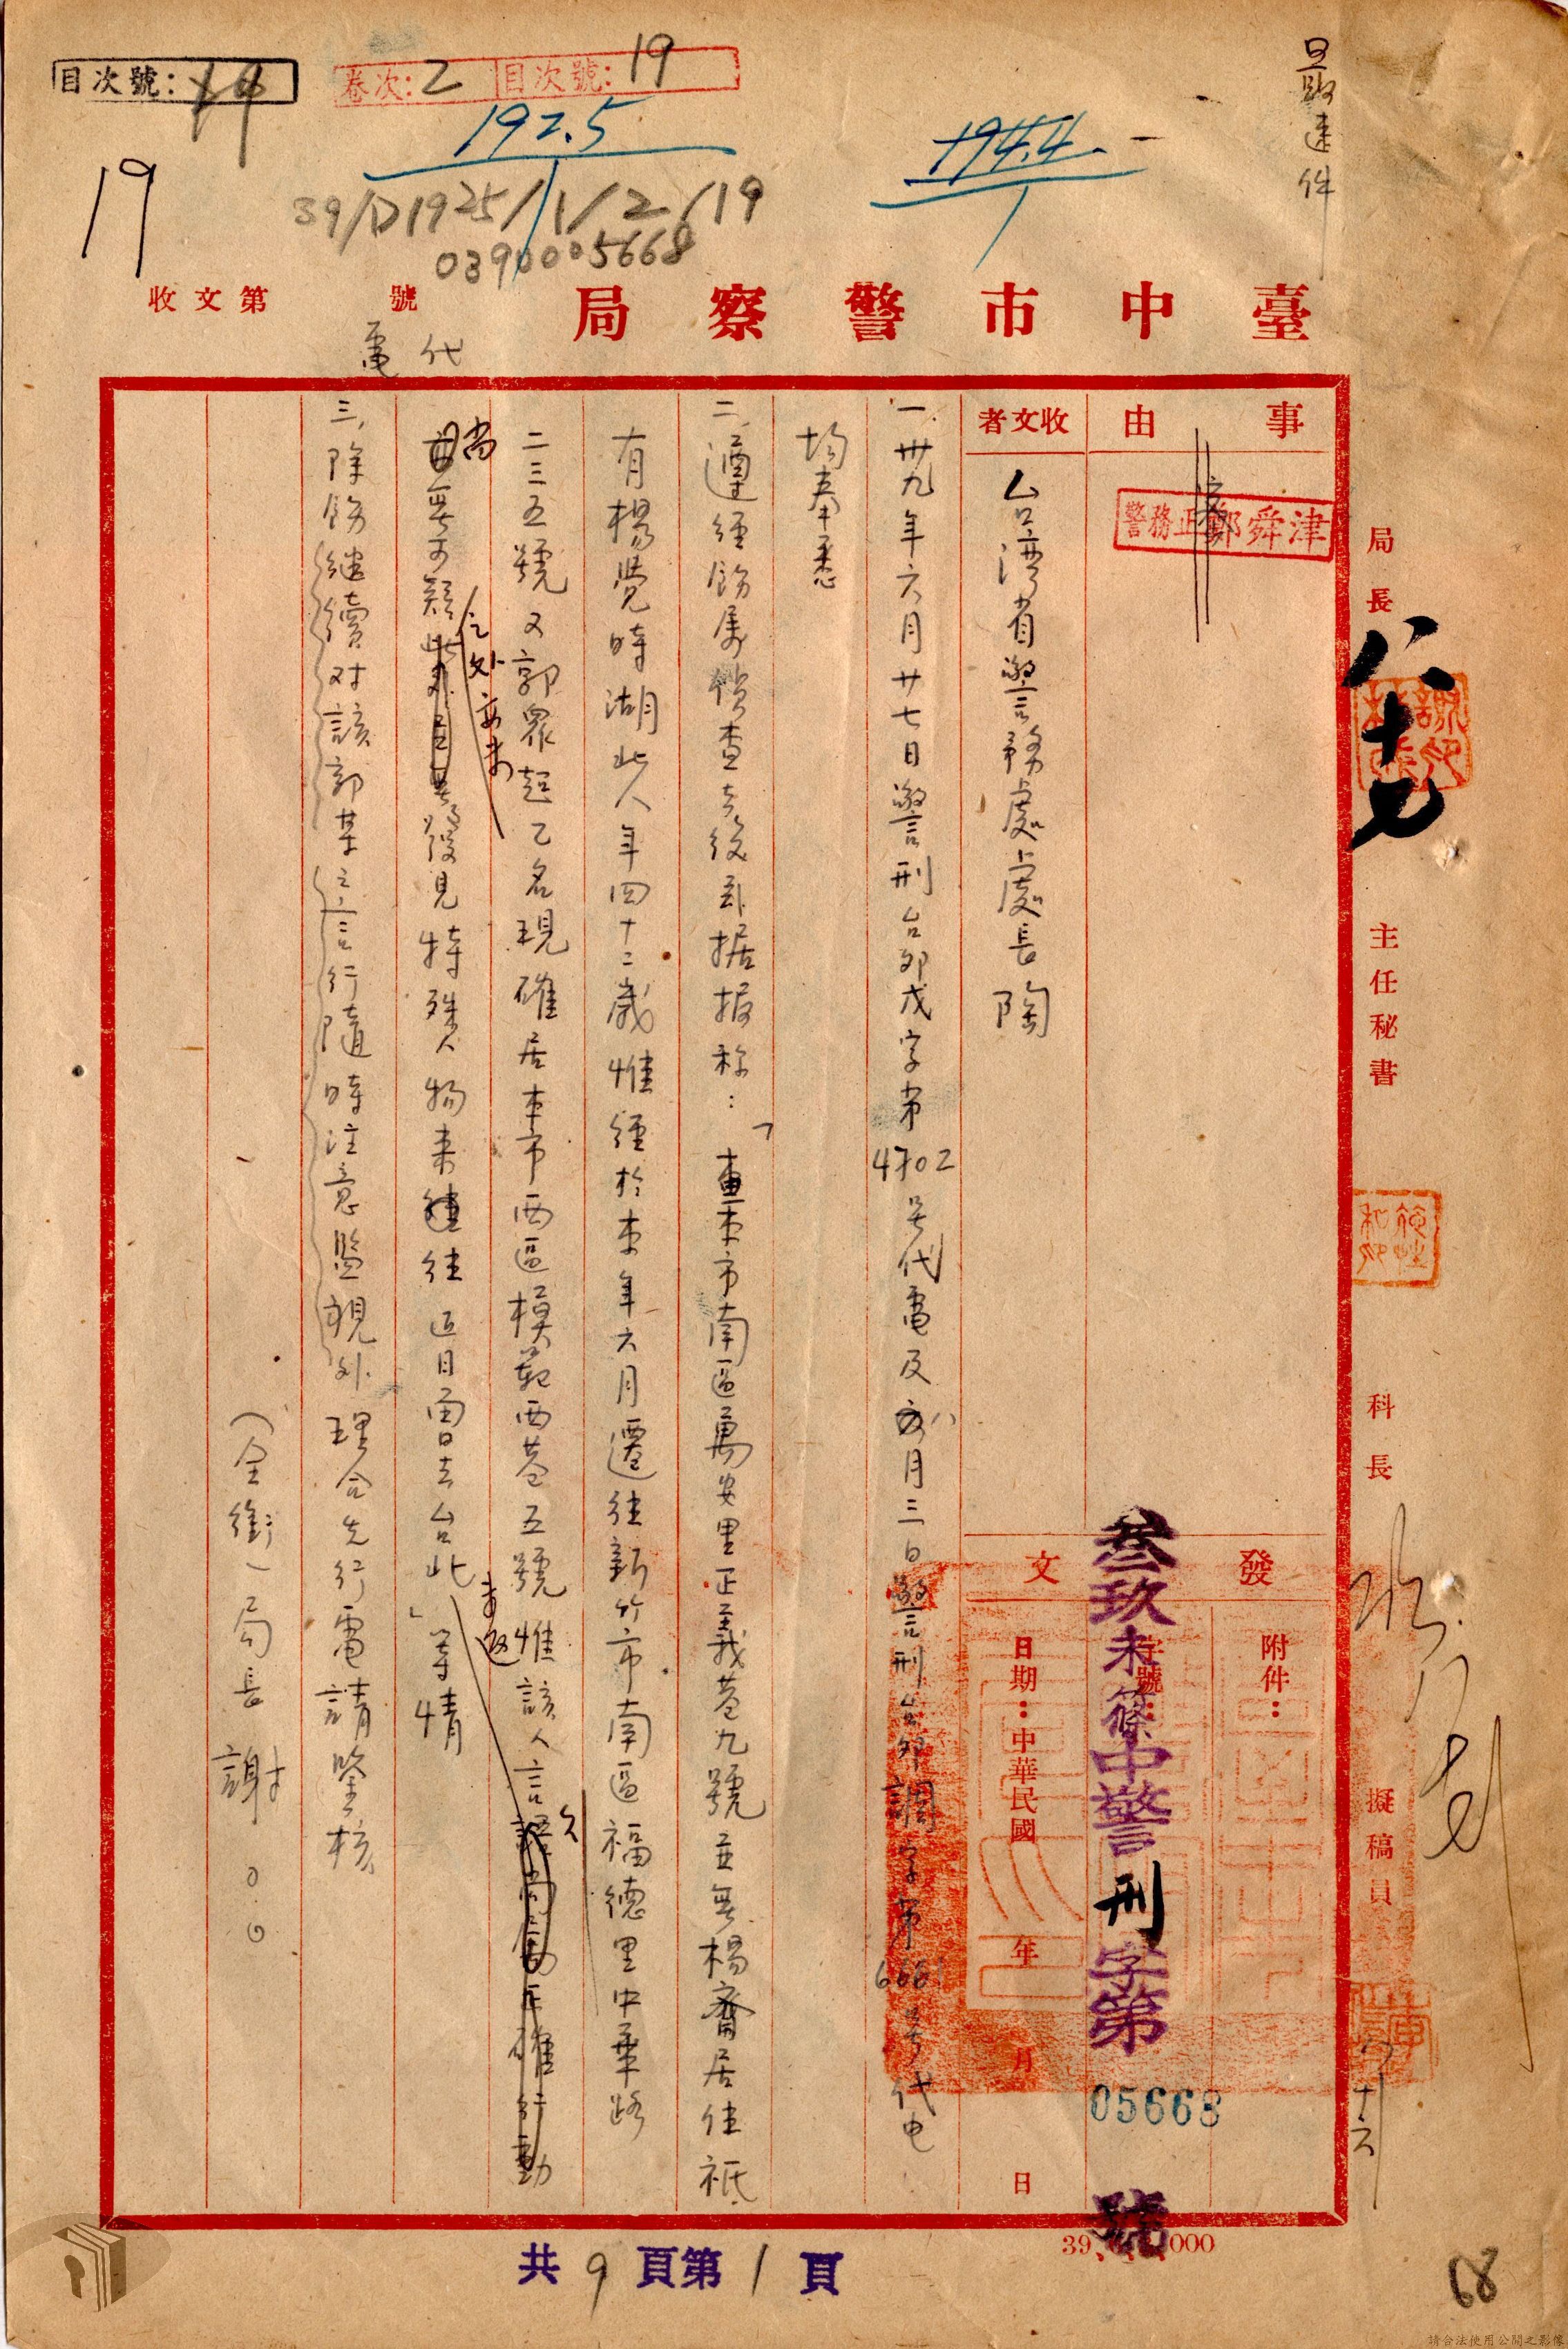 最速件
目次號：
卷次：2 目次號：19
192.5
194.4.
19
39/D1925/1/2/19
0390005668
臺中市警察局
代電
收文第 號
事由
警務正鄭舜津
收文者
台灣省警務處處長陶
發文
附件：
字號：
叁玖未篠中警刑字第05668號
日期：中華民國 年 月 日
一、卅九年六月廿七日警刑台卯戊字第4702号代電及八月三日警刑台卯調字第6661号代电
均奉悉
二、遵經飭屬偵查去後茲据报称：「查本市南區萬安里正義巷九號並無楊齋居住祇
有楊覺時湖北人年四十二歲惟經於本年六月遷往新竹市南區福德里中華路
二三五號又郭眾起乙名現確居本市西區模範西巷五號惟該人言行
尚無可疑之处亦未發見特殊人物来往近日曾去台北未返」等情
三、除飭繼續对該郭某之言行隨時注意監視外理合先行電請鑒核
（全銜）局長謝○○
局長
八
十七
主任秘書
科長
擬稿員
八十六
共9頁第1頁
68
請合法使用公開之影像